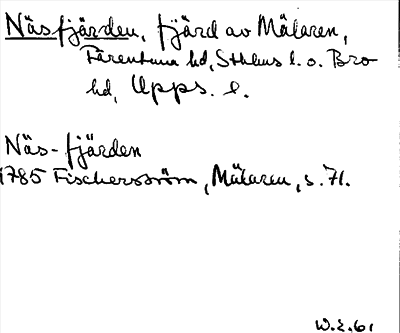 Näsfjärden, fjärd av Mälaren,
Färentuna hd, Sthlms l. o. Bro
hd, Upps. l.
Näs-fjärden
1785 Fischerström, Mälaren, s. 71.
W.Z. 61